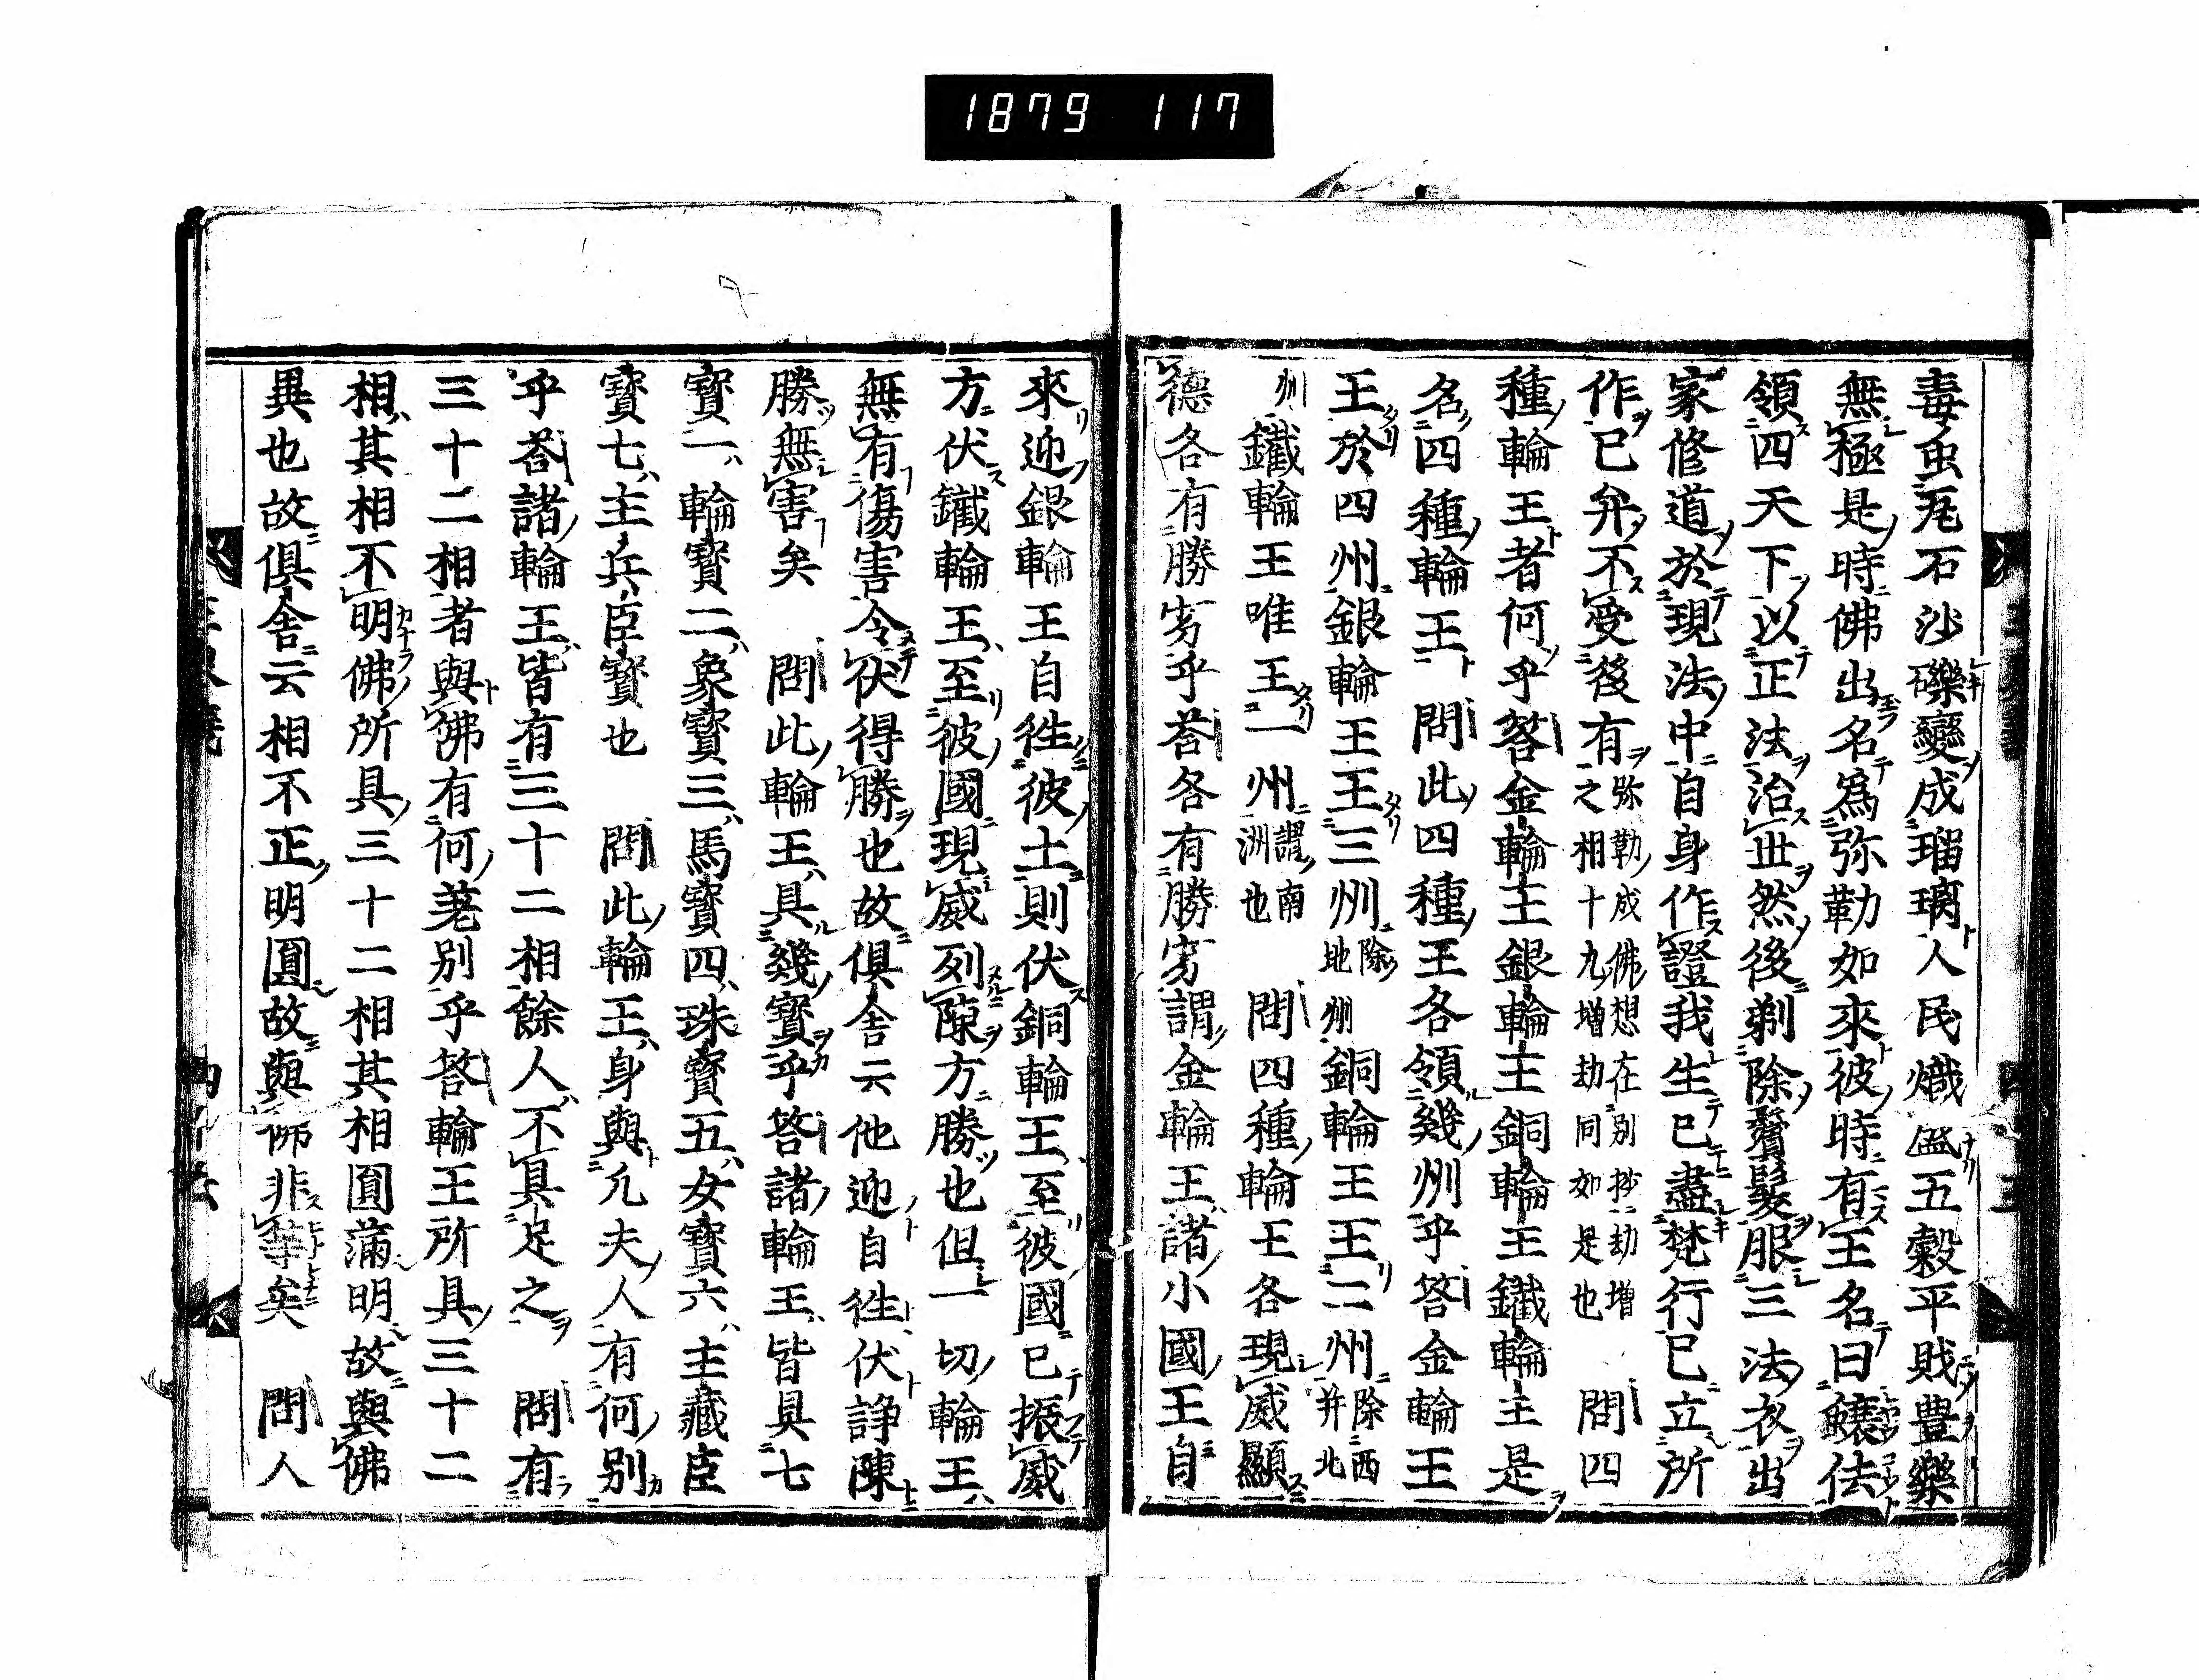 1879 117
毒虫瓦石沙礫變成瑠璃人民熾盛五穀平賎豊樂
無極是時佛出名爲弥勒如來彼時有王名曰蠰佉
領四天下以正法治世然後剃除鬚髮服三法衣出
家修道於現法中自身作證我生已盡梵行已立所
作已弁不受後有弥勒成佛想在別抄劫増之相十九増劫同如是也 問四
種輪王者何乎答金輪王銀輪王銅輪王鐵輪王是
名四種輪王 問此四種王各領幾州乎答金輪王
王於四州銀輪王王三州除北州銅輪王王二州除西并北
州鐵輪王唯王一州謂南洲也 問四種輪王各現威顯
德各有勝劣乎荅各有勝劣謂金輪王諸小國王自
來迎銀輪王自往彼土則伏銅輪王至彼國已振威
方伏鐵輪王至彼國現威列陳方勝也但一切輪王
無有傷害令伏得勝也故俱舎云他迎自往伏諍陳
勝無害矣 問此輪王具幾寳乎答諸輪王皆具七
寳一輪寳二象寳三馬寳四珠寳五女寳六主藏臣
寳七主兵臣寳也 問此輪王身與凡夫人有何別
乎荅諸輪王皆有三十二相餘人不具足之 問有
三十二相者與佛有何差別乎答輪王所具三十二
相其相不明佛所具三十二相其相圓滿明故與佛
異也故俱舎云相不正明圓故與佛非等矣 問人